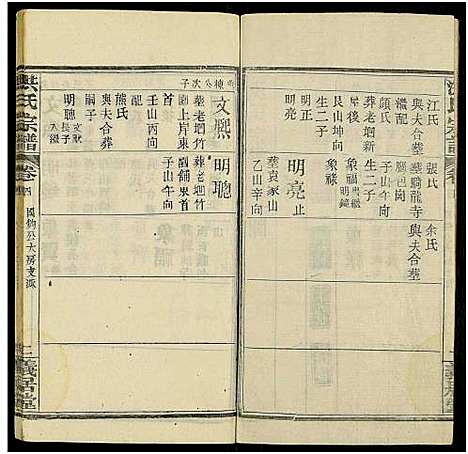 江氏
與夫合塟
繼配
顏氏
葬老堌新
屋後
艮山坤向
生二子
明正
明亮
張氏
塟騎龍寺
鳳邑崗
子山午向
生二子
象福出繼明鏡
象祿
余氏
與夫合塟
明亮止
塟袁家山
乙山辛向
棟公次子
文熙
塟老堌竹
園上岸東
首
壬山丙向
熊氏
與夫合葬
嗣子
明聰文猷長子入繼
明聰
葬老堌竹
園舖東首
子山午向
洪氏宗譜
卷四
國鈞公大房支派
義居堂